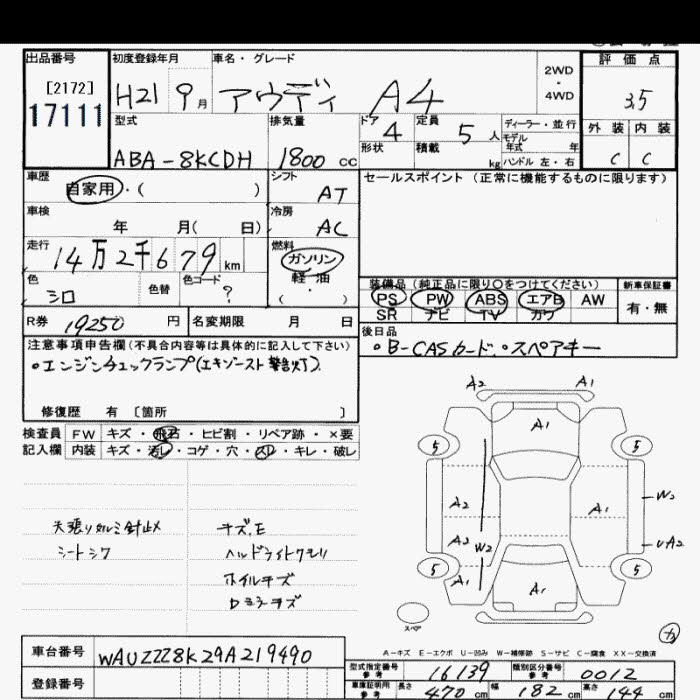 出品番号 初度登録年月 車名・グレード 評価点
[2172] H21 9月 アウディ A4 2WD・4WD 3.5
17111
型式 排気量 ドア 4 定員 5人 ディーラー・並行 外装 内装
ABA-8KCDH 1800cc 形状 積載 kg モデル年式 年 C C
ハンドル 左・右
車歴 シフト セールスポイント(正常に機能するものに限ります)
自家用・( ) AT
車検 年 月( 日) 冷房 AC
走行 14万2千679km 燃料 ガソリン
軽油
( ・ )
色 シロ 色替 色コード ?
装備品(純正品に限り○をつけてください) 新車保証書
PS PW ABS エアB AW 有・無
SR ナビ TV カワ
R券 19250円 名変期限 月 日
後日品
・B-CASカード・スペアキー
注意事項申告欄(不具合内容等は具体的に記入して下さい)
・エンジンチェックランプ(エキゾースト警告灯)
修復歴 有 [箇所 ]
検査員 FW キズ・飛石・ヒビ割・リペア跡・×要
記入欄 内装 キズ・汚レ・コゲ・穴・スレ・キレ・破レ
天張りタルミ針止メ キズ、E
シートシワ ヘッドライトクモリ
ホイルキズ
Dミラーキズ
A2 A1
A1
5 5
A2 A1 W2
A2 W2 UA2
5 5
A1 A1
スペア
A-キズ E-エクボ U-凹み W-補修跡 S-サビ C-腐食 XX-交換済
車台番号 WAUZZZ8K29A219490
登録番号
型式指定番号 参考 16139 類別区分番号 参考 0012
車庫証明用 参考 長さ 470cm 幅 182cm 高さ 144cm